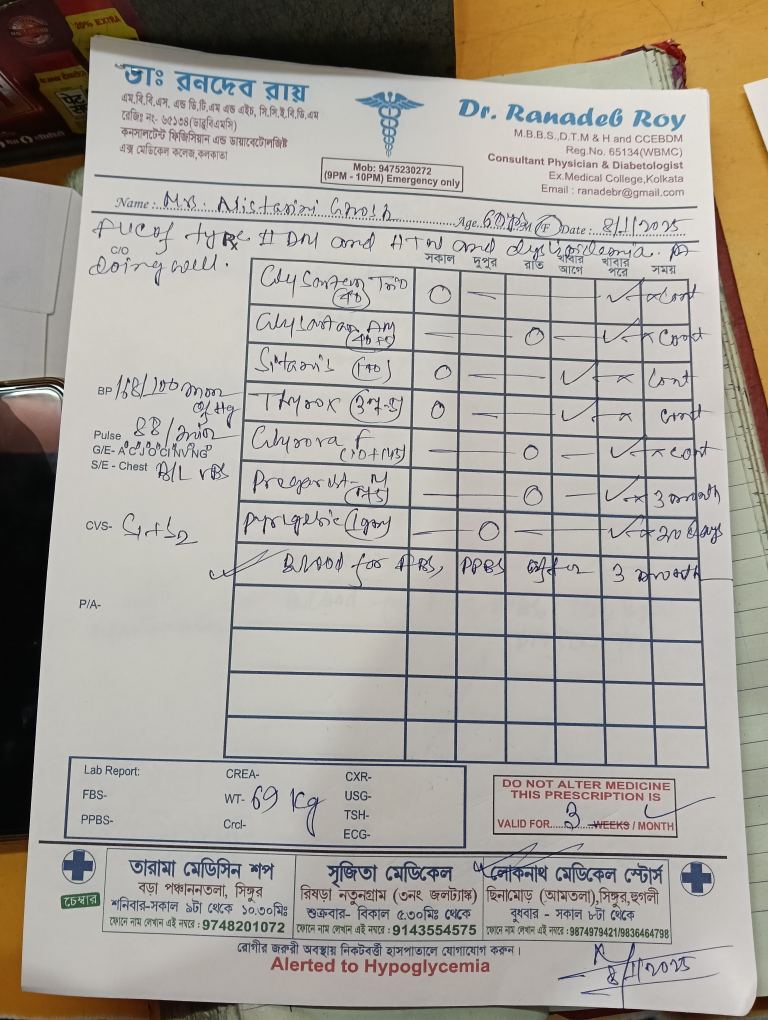 ডাঃ রনদেব রায়
এম.বি.বি.এস. এন্ড ডি.টি.এম এন্ড এইচ, সি.সি.ই.বি.ডি.এম
রেজিঃ নং- ৬৫১৩৪(ডাব্লুবিএমসি)
কনসালটেন্ট ফিজিসিয়ান এন্ড ডায়াবেটোলজিষ্ট
এক্স মেডিকেল কলেজ,কলকাতা
Mob: 9475230272
(9PM - 10PM) Emergency only
Dr. Ranadeb Roy
M.B.B.S.,D.T.M & H and CCEBDM
Reg.No. 65134(WBMC)
Consultant Physician & Diabetologist
Ex.Medical College,Kolkata
Email : ranadebr@gmail.com
Name : Mrs. Nistarini Ghosh Age 60 yrs M (F) Date : 8/1/2025
of type II DM and HTN and dyslipidemia.
C/O Rx
doing well.
সকাল দুপুর রাত খাবার আগে খাবার পরে সময়
Trio (40) O — — — ✓ x Cont
AM (40+5) — — O — ✓ x Cont
(100) O — — ✓ — x Cont
Thyrox (37.5) O — — ✓ — x Cont
F (10+145) — — O — ✓ x Cont
M (75) — — O — ✓ x 3 month
(1gm) — O — — ✓ x 20 days
✓ Blood for FBS, PPBS after 3 month
BP 168/100 mm of Hg
Pulse 88/min
G/E- A°C°J°O°CI°NV°NG°
S/E - Chest B/L VBS
CVS- S1+S2
P/A-
Lab Report:
FBS-
PPBS-
CREA-
WT- 69 Kg
Crcl-
CXR-
USG-
TSH-
ECG-
DO NOT ALTER MEDICINE
THIS PRESCRIPTION IS
VALID FOR......3......WEEKS / MONTH
চেম্বার
তারামা মেডিসিন শপ
বড়া পঞ্চাননতলা, সিঙ্গুর
শনিবার-সকাল ৯টা থেকে ১০.৩০মিঃ
ফোনে নাম লেখান এই নম্বরে : 9748201072
সৃজিতা মেডিকেল
রিষড়া নতুনগ্রাম (৩নং জলট্যাঙ্ক)
শুক্রবার- বিকাল ৫.৩০মিঃ থেকে
ফোনে নাম লেখান এই নম্বরে : 9143554575
লোকনাথ মেডিকেল স্টোর্স
ছিনামোড় (আমতলা),সিঙ্গুর,হুগলী
বুধবার - সকাল ৮টা থেকে
ফোনে নাম লেখান এই নম্বরে :9874979421/9836464798
রোগীর জরুরী অবস্থায় নিকটবর্ত্তী হাসপাতালে যোগাযোগ করুন।
Alerted to Hypoglycemia
8/1/2025
20% EXTRA